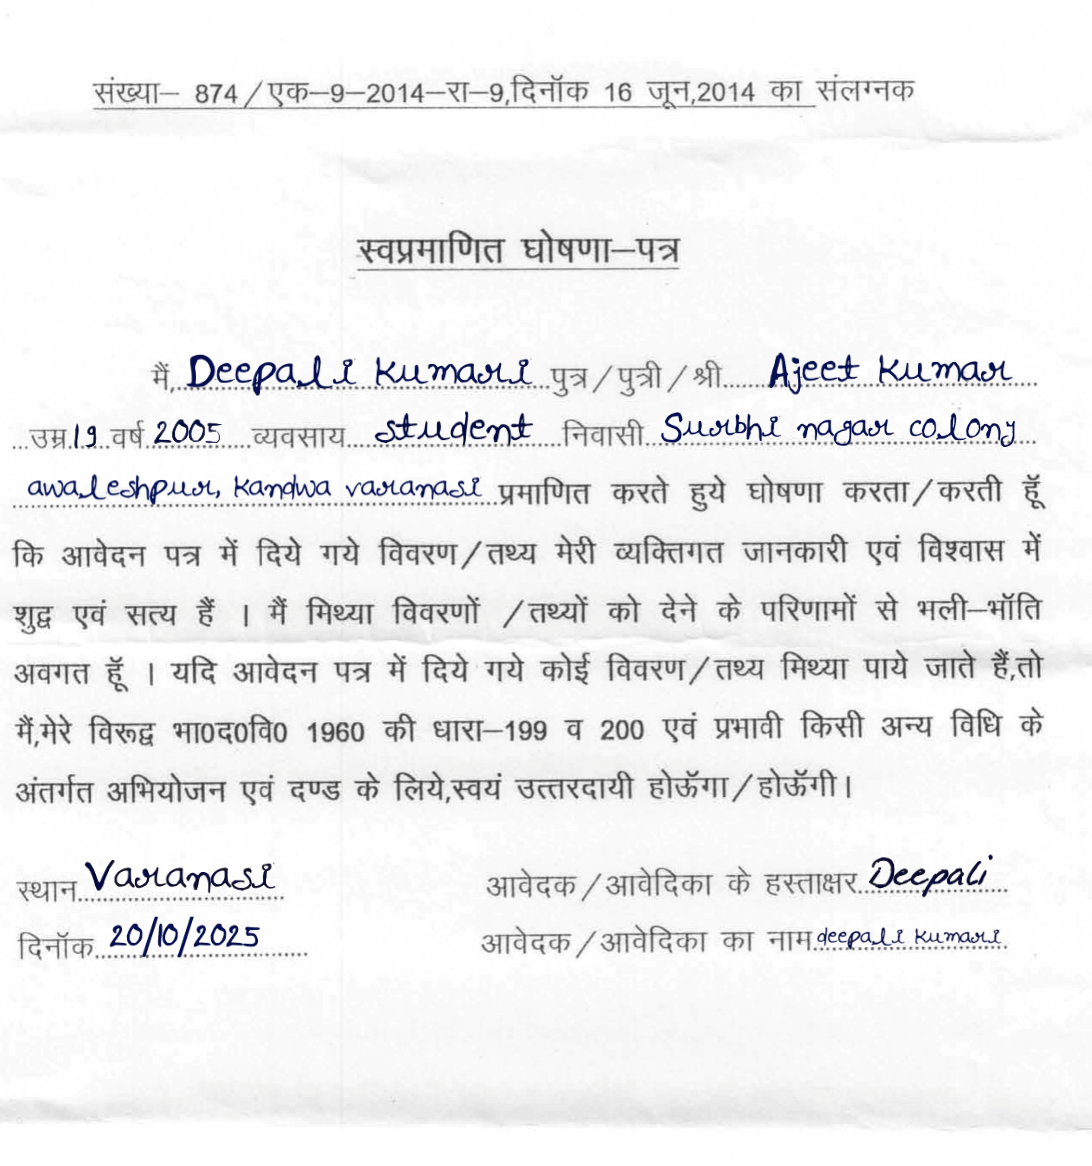 संख्या– 874/एक–9–2014–रा–9,दिनॉक 16 जून,2014 का संलग्नक
स्वप्रमाणित घोषणा–पत्र
मैं, Deepali Kumari पुत्र/पुत्री/श्री Ajeet Kumar
उम्र 19 वर्ष 2005 व्यवसाय student निवासी Surbhi nagar colony
awaleshpur, Kandwa varanasi प्रमाणित करते हुये घोषणा करता/करती हूॅ
कि आवेदन पत्र में दिये गये विवरण/तथ्य मेरी व्यक्तिगत जानकारी एवं विश्वास में
शुद्व एवं सत्य हैं । मैं मिथ्या विवरणों /तथ्यों को देने के परिणामों से भली–भॉति
अवगत हूॅ । यदि आवेदन पत्र में दिये गये कोई विवरण/तथ्य मिथ्या पाये जाते हैं,तो
मैं,मेरे विरूद्व भा0द0वि0 1960 की धारा–199 व 200 एवं प्रभावी किसी अन्य विधि के
अंतर्गत अभियोजन एवं दण्ड के लिये,स्वयं उत्तरदायी होऊॅगा/होऊॅगी।
स्थान Varanasi आवेदक/आवेदिका के हस्ताक्षर Deepali
दिनॉक 20/10/2025 आवेदक/आवेदिका का नाम deepali kumari